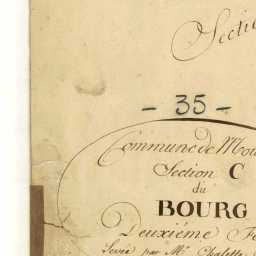 Section
- 35 -
Commune de Mou
Section C
du
BOURG
Deuxiéme Fe
Levée par Mr. Chalette